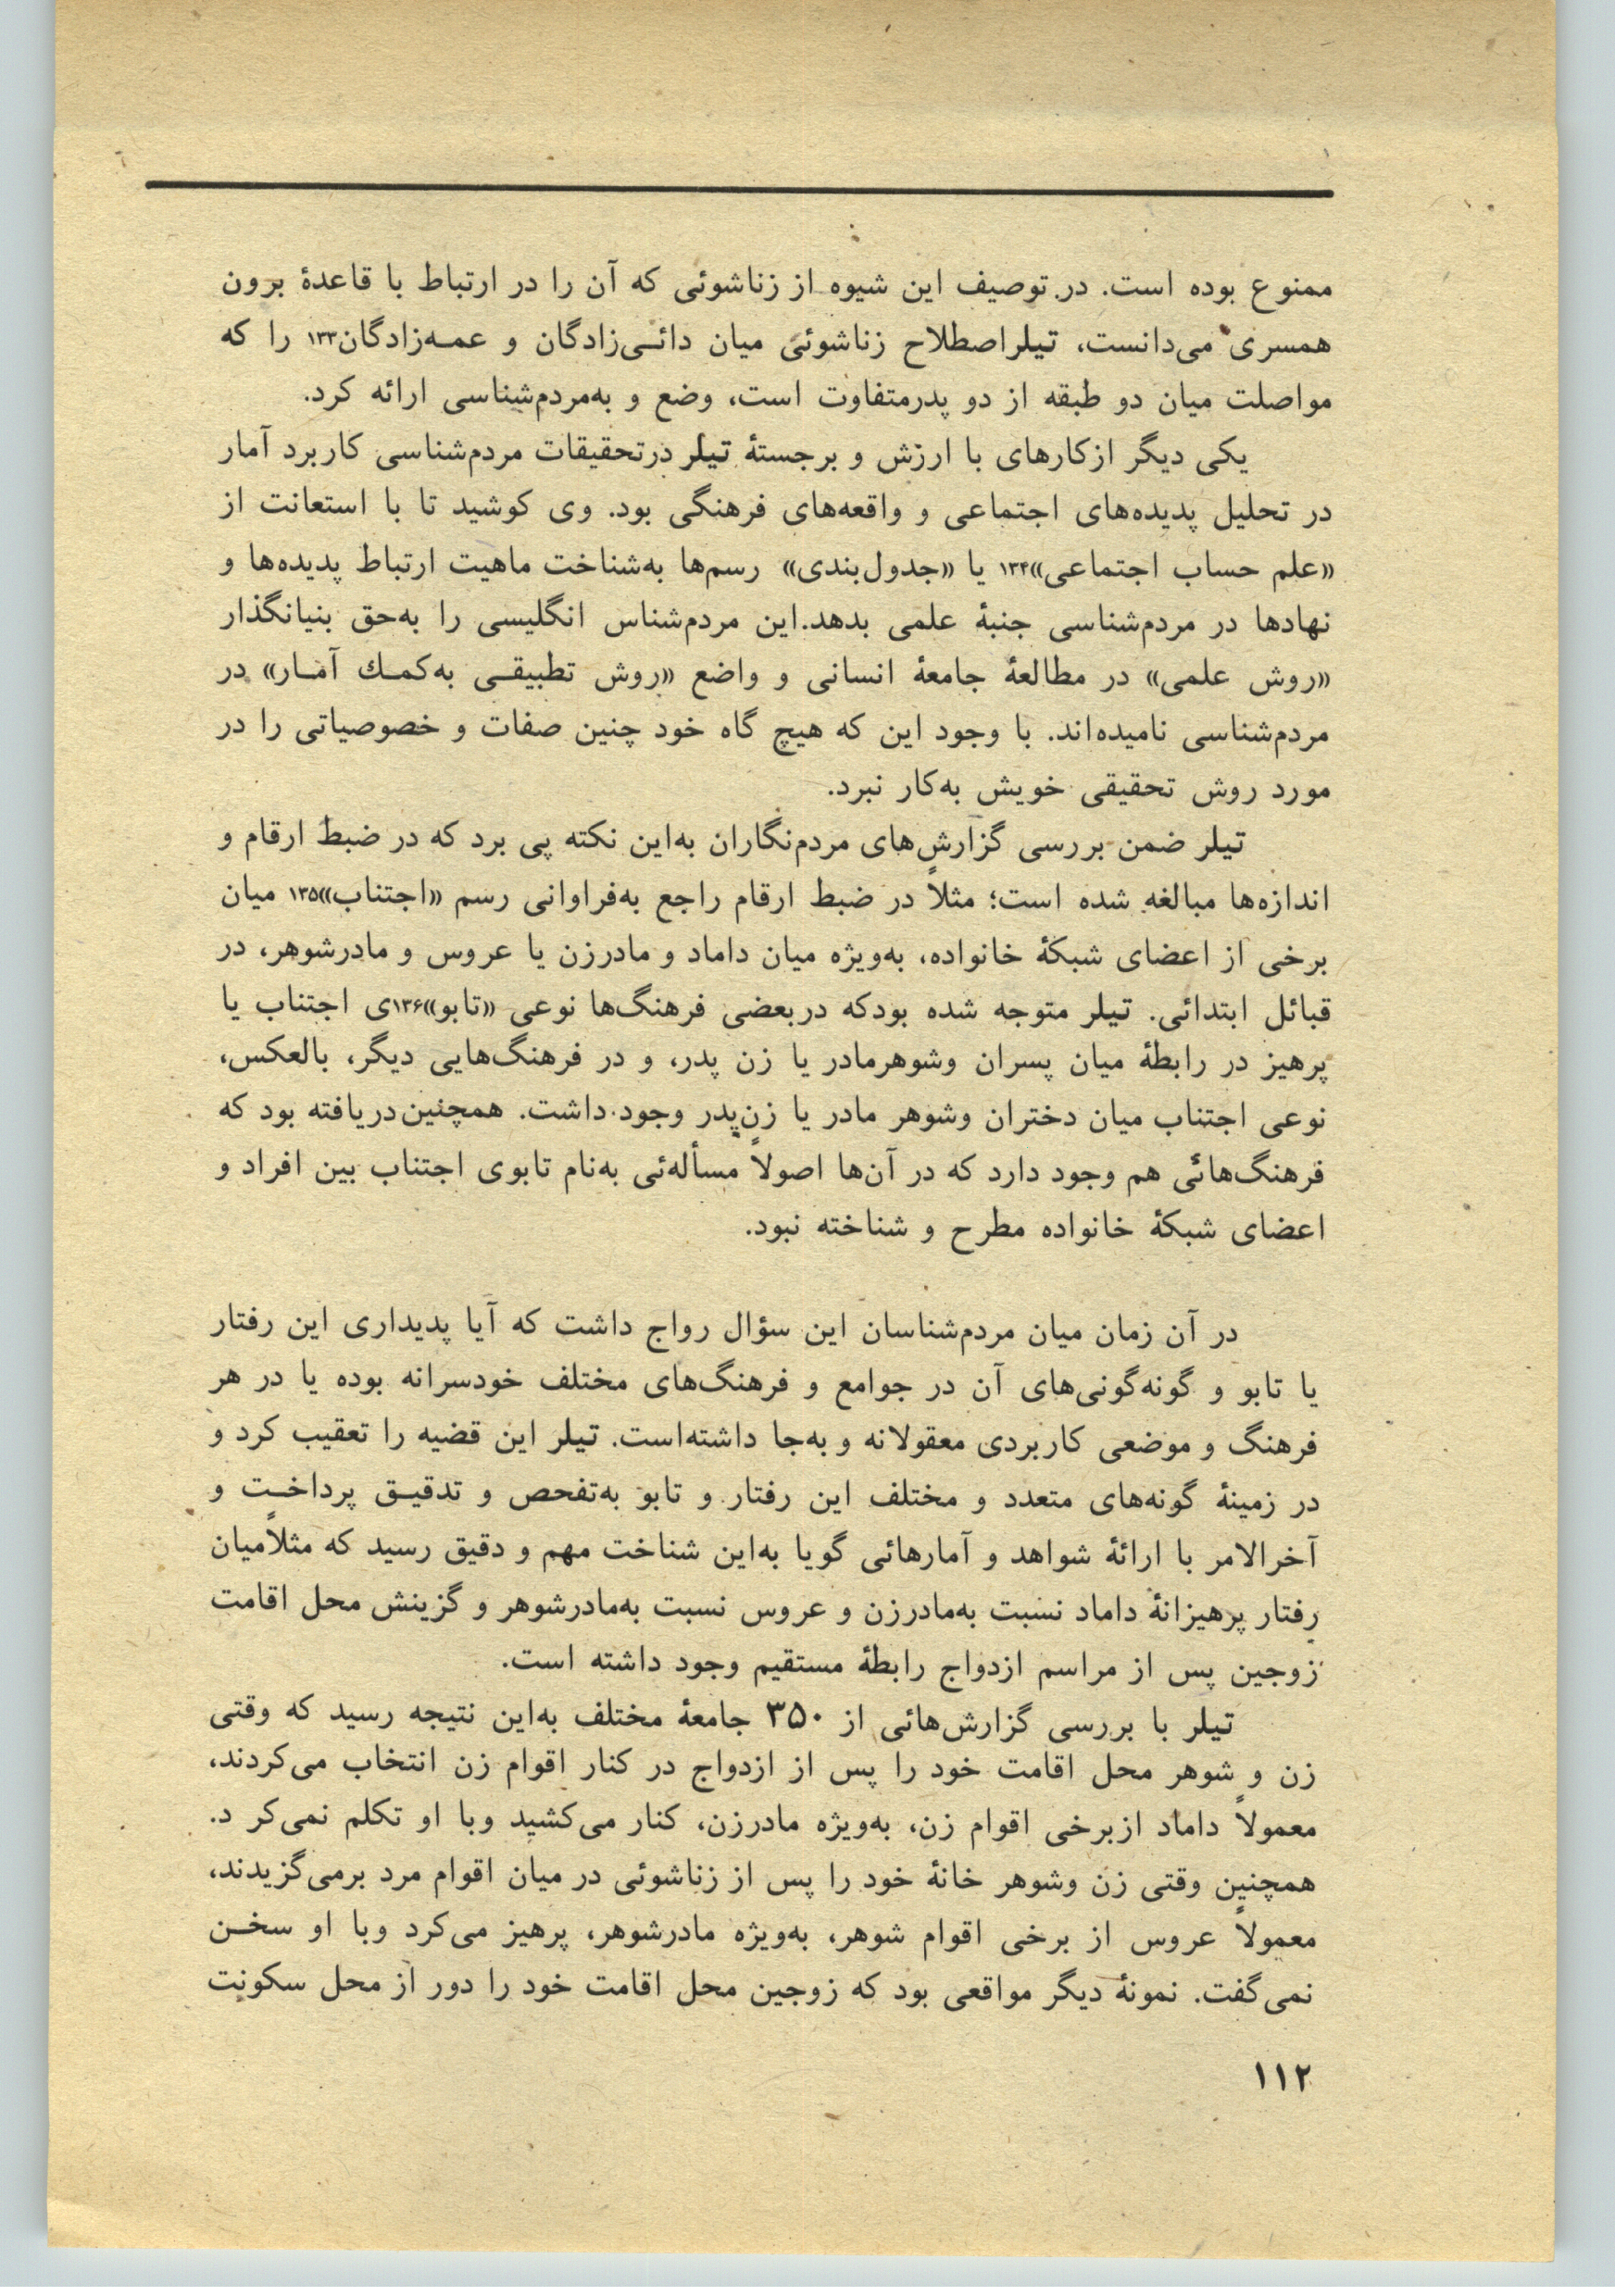 ممنوع بوده است. در توصیف این شیوه از زناشوئی که آن را در ارتباط با قاعدهٔ برون
همسری می‌دانست، تیلراصطلاح زناشوئی میان دائـی‌زادگان و عمـه‌زادگان۱۳۳ را که
مواصلت میان دو طبقه از دو پدرمتفاوت است، وضع و به‌مردم‌شناسی ارائه کرد.
یکی دیگر ازکارهای با ارزش و برجستهٔ تیلر درتحقیقات مردم‌شناسی کاربرد آمار
در تحلیل پدیده‌های اجتماعی و واقعه‌های فرهنگی بود. وی کوشید تا با استعانت از
«علم حساب اجتماعی»۱۳۴ یا «جدول‌بندی» رسم‌ها به‌شناخت ماهیت ارتباط پدیده‌ها و
نهادها در مردم‌شناسی جنبهٔ علمی بدهد.این مردم‌شناس انگلیسی را به‌حق بنیانگذار
«روش علمی» در مطالعهٔ جامعهٔ انسانی و واضع «روش تطبیقـی به‌کمـك آمـار» در
مردم‌شناسی نامیده‌اند. با وجود این که هیچ گاه خود چنین صفات و خصوصیاتی را در
مورد روش تحقیقی خویش به‌کار نبرد.
تیلر ضمن بررسی گزارش‌های مردم‌نگاران به‌این نکته پی برد که در ضبط ارقام و
اندازه‌ها مبالغه شده است؛ مثلاً در ضبط ارقام راجع به‌فراوانی رسم «اجتناب»۱۳۵ میان
برخی از اعضای شبکهٔ خانواده، به‌ویژه میان داماد و مادرزن یا عروس و مادرشوهر، در
قبائل ابتدائی. تیلر متوجه شده بودکه دربعضی فرهنگ‌ها نوعی «تابو»۱۳۶ی اجتناب یا
پرهیز در رابطهٔ میان پسران وشوهرمادر یا زن پدر، و در فرهنگ‌هایی دیگر، بالعکس،
نوعی اجتناب میان دختران وشوهر مادر یا زن‌پدر وجود داشت. همچنین‌دریافته بود که
فرهنگ‌هائی هم وجود دارد که در آن‌ها اصولاً مسأله‌ئی به‌نام تابوی اجتناب بین افراد و
اعضای شبکهٔ خانواده مطرح و شناخته نبود.
در آن زمان میان مردم‌شناسان این سؤال رواج داشت که آیا پدیداری این رفتار
یا تابو و گونه‌گونی‌های آن در جوامع و فرهنگ‌های مختلف خودسرانه بوده یا در هر
فرهنگ و موضعی کاربردی معقولانه و به‌جا داشته‌است. تیلر این قضیه را تعقیب کرد و
در زمینهٔ گونه‌های متعدد و مختلف این رفتار و تابو به‌تفحص و تدقیـق پرداخـت و
آخرالامر با ارائهٔ شواهد و آمارهائی گویا به‌این شناخت مهم و دقیق رسید که مثلاًمیان
رفتار پرهیزانهٔ داماد نسبت به‌مادرزن و عروس نسبت به‌مادرشوهر و گزینش محل اقامت
زوجین پس از مراسم ازدواج رابطهٔ مستقیم وجود داشته است.
تیلر با بررسی گزارش‌هائی از ۳۵۰ جامعهٔ مختلف به‌این نتیجه رسید که وقتی
زن و شوهر محل اقامت خود را پس از ازدواج در کنار اقوام زن انتخاب می‌کردند،
معمولاً داماد ازبرخی اقوام زن، به‌ویژه مادرزن، کنار می‌کشید وبا او تکلم نمی‌کر د.
همچنین وقتی زن وشوهر خانهٔ خود را پس از زناشوئی در میان اقوام مرد برمی‌گزیدند،
معمولاً عروس از برخی اقوام شوهر، به‌ویژه مادرشوهر، پرهیز می‌کرد وبا او سخـن
نمی‌گفت. نمونهٔ دیگر مواقعی بود که زوجین محل اقامت خود را دور از محل سکونت
۱۱۲